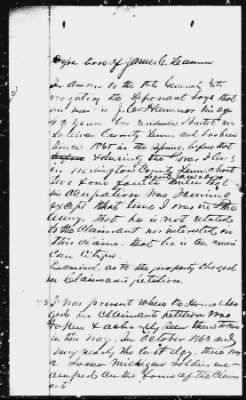 James C.
In answer to the 1st General Inte
rogatory the Deponant says that
his name is J. C. his age
4 years his residence in
Sullivan County Tenn. and has been
since 1865 in the Spring, before that
& during the War I lived
in Washington County Tenn. about
two & one fourth miles that
his occupation was farming
except that time I was in the
army. that he is not related
to the Claimant nor interested in
this claim. that he is an ameri
can Citizen.
Examined, as to the property charged
in Claimants petition.
I was present when the Horse char
ged in Claimants petition was
taken &
in this way. In October 1863 and
very nearly the last day, there was
a Michigan soldiers en-
camped on the farm of the Claim
ant